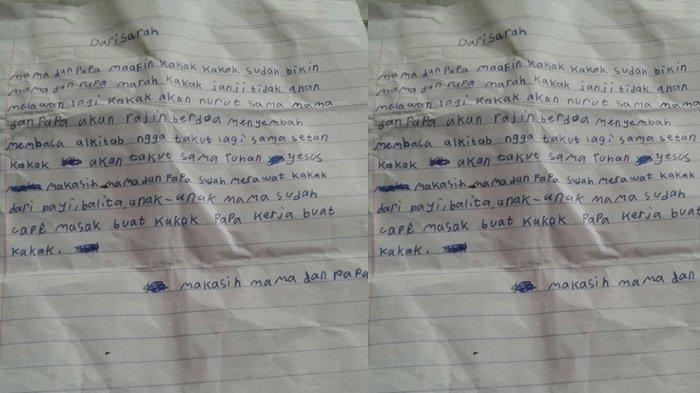 Dari sarah
mama dan papa maafin kakak kakak sudah bikin
mama dan papa marah kakak janji tidak akan
melawan lagi kakak akan nurut sama mama
dan papa akan rajin berdoa menyembah
membaca alkitab ngga takut lagi sama setan
kakak akan takut sama Tuhan yesus
makasih mama dan papa suah merawat kakak
dari bayi, balita, anak-anak mama sudah
cape masak buat kakak papa kerja buat
kakak.
makasih mama dan papa
Dari sarah
mama dan papa maafin kakak kakak sudah bikin
mama dan papa marah kakak janji tidak akan
melawan lagi kakak akan nurut sama mama
dan papa akan rajin berdoa menyembah
membaca alkitab ngga takut lagi sama setan
kakak akan takut sama Tuhan yesus
makasih mama dan papa suah merawat kakak
dari bayi, balita, anak-anak mama sudah
cape masak buat kakak papa kerja buat
kakak.
makasih mama dan